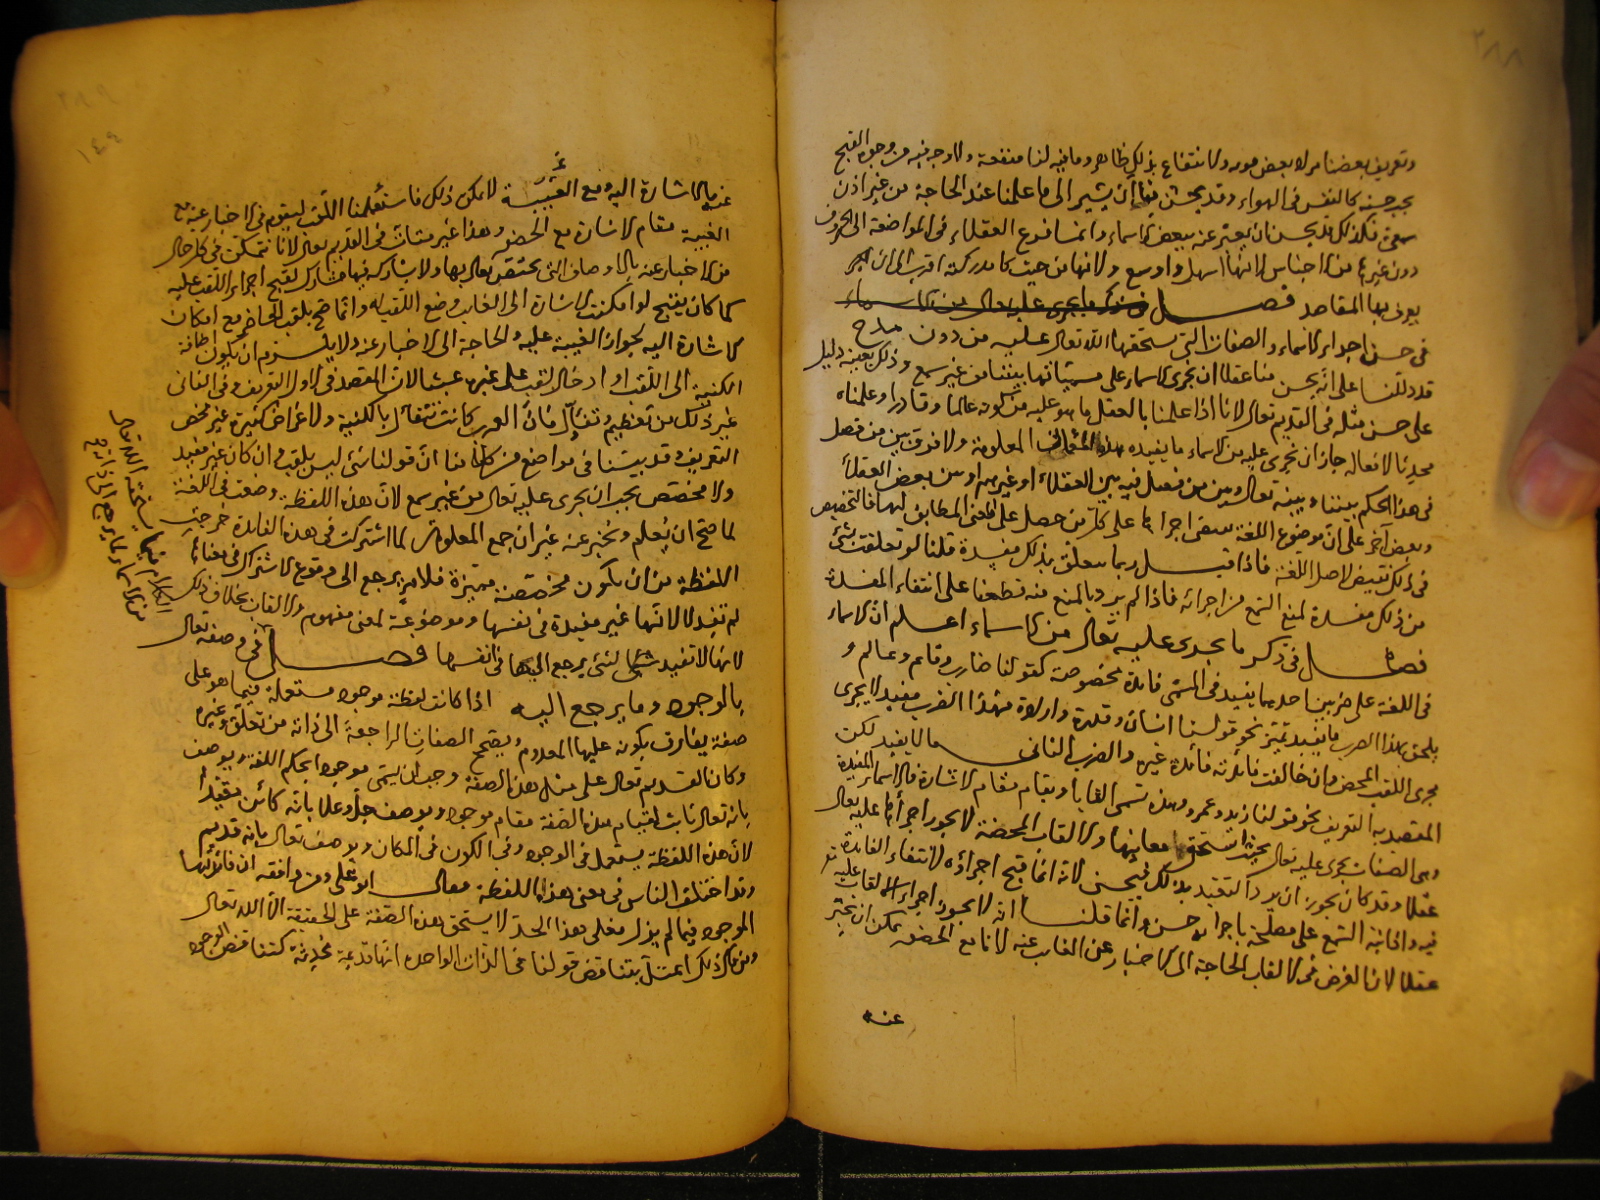 ٢٨٨
وتعريف بعضنا مراد بعض مورد والانتفاع بذلك ظاهر وما فيه لنا منفعة ولا وجه فيه من وجوه القبح
يجب حسنه كالتنفس في الهواء وقد يحسن منا أن يشير الى ما علمنا عند الحاجة من غير اذن
سمعى فكذلك يحسن ان يعبر عنه ببعض الاسماء وانما فزع العقلاء في المواضعة الى الحروف
دون غيرها من الاجناس لانها اسهل واوسع ولانها من حيث كانت مدركة اقرب الى ان
يعرف بها المقاصد فصل
في حسن اجراء الاسماء والصفات التي يستحقها الله تعالى عليه من دون سمع
قد دللنا على انه يحسن منا عقلا ان نجرى الاسماء على مسمياتها بيننا من غير سمع وذلك بعينه دليل
على حسن مثله في القديم تعالى لانا اذا علمنا بالعقل ما هو عليه من كونه عالما وقادرا وعلمناه
محدثا لافعاله جاز ان نجرى عليه من الاسماء ما يفيد هذه المعاني المعلومة ولا فرق بين من فصل
في هذا الحكم بيننا وبينه تعالى وبين من فصل فيه بين العقلاء او غيرهم او بين بعض العقلاء
وبعض آخر على ان موضوع اللغة يقتضى اجراءها على كل من حصل على المعنى المطابق لها فالتخصيص
في ذلك نقض لاصل اللغة فاذا قيل ربما يتعلق بذلك مفسدة قلنا لو تعلقت بشئ
من ذلك مفسدة لمنع السمع من اجرائه فاذا لم يرد بالمنع منه قطعنا على انتفاء المفسدة
فصل في ذكر ما يجرى عليه تعالى من الاسماء اعلم ان الاسماء
في اللغة على ضربين احدهما يفيد في المسمى فائدة مخصوصة كقولنا ضارب وقائم وعالم و
يلحق بهذا الضرب ما يفيد تميز نحو قولنا انسان وقدرة وارادة فهذا الضرب مفيد لا يجرى
مجرى اللقب المحض وان خالفت فائدته فائدة غيره والضرب الثانى ما لا يفيد لكن
المقصد به التعريف نحو قولنا زيد وعمرو وهذه تسمى القابا ويقام مقام الاشارة فالاسماء المفيدة
وهي الصفات يجرى عليه تعالى بحيث استحق معانيها والالقاب المحضة لا يجوز اجراؤها عليه تعالى
عقلا وقد كان يجوز ان يرد التعبد بذلك فيحسن لانه انما قبح اجراؤه لانتفاء الفائدة
فيه واذا نبه السمع على مصلحة باجرائه حسن وانما قلنا انه لا يجوز اجراء الالقاب عليه تعالى
عقلا لان الغرض في الالقاب الحاجة الى الاخبار عن الغائب عنه لانا مع الحضور يمكن ان نخبر
عنه
٢٨٩
١٤٩
عنه بالاشارة اليه ومع الغيبة لا يمكن ذلك فاستعملنا اللقب ليقوم في الاخبار عنه مع
الغيبة مقام الاشارة مع الحضور وهذا غير متأت في القديم تعالى لانا نتمكن في كل حال
من الاخبار عنه بالاوصاف التي يختص تعالى بها ولا يشاركه فيها مشارك فقبح اجراء اللقب عليه
كما كان يقبح لو امكنت الاشارة الى الغائب وضع اللقب له وانما صح تلقيب الحاضر مع امكان
الاشارة اليه لجواز الغيبة عليه والحاجة الى الاخبار عنه ولا يلزم ان يكون اضافة
الكنية الى اللقب او ادخال لقب على غيره عبثا لان المقصد في الاول التعريف وفي الثانى
غير ذلك من تعظيم وتفأل فان العرب كانت تتفأل بالكنية ولاغراض كثيرة غير محض
التعريف وقد بينا في مواضع من كلامنا ان قولنا شئ ليس بلقب وان كان غير مفيد
ولا مختص يجب ان يجرى عليه تعالى من غير سمع لان هذه اللفظة وضعت في اللغة
لما صح ان يعلم ويخبر عنه غير ان جميع المعلومات لما اشتركت في هذه الفائدة خرجت
اللفظة من ان يكون مخصصة متميزة فلامر يرجع الى وقوع الاشتراك في معناها
لم تفد لا لانها غير مفيدة في نفسها وموضوعة لمعنى مفهوم والالقاب بخلاف ذلك
لانها لا تفيد لشئ يرجع اليها في انفسها فصل في وصفه تعالى
بالوجود وما يرجع اليه اذا كانت لفظة موجود مستعملة فيما هو على
صفة يفارق بكونه عليها المعدوم ويصحح الصفات الراجعة الى ذاته من تعلق وغيره
وكان القديم تعالى على مثل هذه الصفة وجب ان يسمى موجودا بحكم اللغة ويوصف
بانه تعالى ثابت لقيام هذه الصفة مقام موجود ويوصف جل وعلا بانه كائن مقيدا
لان هذه اللفظة يستعمل في الوجود وفي الكون في المكان ويوصف تعالى بانه قديم
وقد اختلف الناس في معنى هذه اللفظة فقال ابو على ومن وافقه ان فائدتها
الموجود فيما لم يزل فعلى هذا الحد لا يستحق هذه الصفة على الحقيقة الا الله تعالى
ومن قال ذلك اعتل بتناقض قولنا في الذات الواحدة انها قديمة محدثة كتناقض الوجود
الكلام فيما يستحقه الله تعالى
من الاسماء مما يرجع الى ذاته